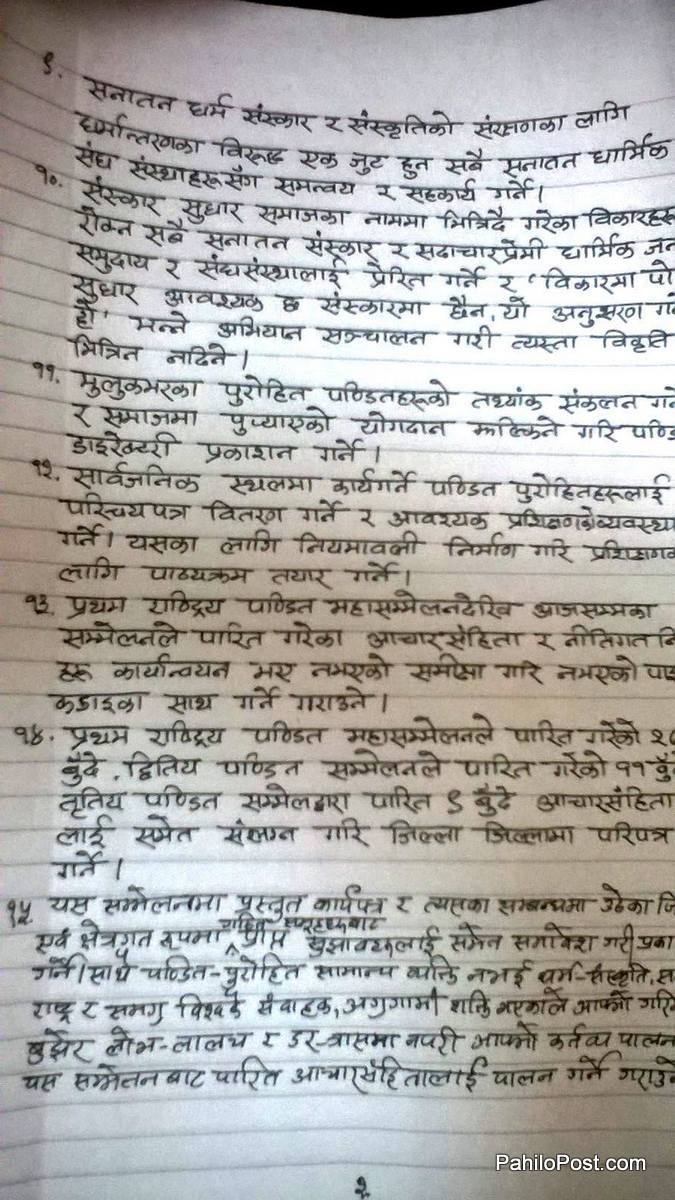 ९. सनातन धर्म संस्कार र संस्कृतिको संरक्षणका लागि
धर्मान्तरणका विरूद्ध एक जुट हुन सबै सनातन धार्मिक
संघ संस्थाहरूसँग समन्वय र सहकार्य गर्ने।
१०. संस्कार सुधार समाजका नाममा भित्रिदै गरेका विकारहरू
रोक्न सबै सनातन संस्कार र सदाचारप्रेमी धार्मिक जन
समुदाय र संघसंस्थालाई प्रेरित गर्ने र 'विकारमा पो
सुधार आवश्यक छ संस्कारमा छैन, यो अनुसरण गर्ने
हो' भन्ने अभियान सञ्चालन गरी त्यस्ता विकृति
भित्रिन नदिने।
११. मुलुकभरका पुरोहित पण्डितहरूको तथ्यांक संकलन गर्ने
र समाजमा पुर्‍याएको योगदान झल्किने गरि पण्डि
डाइरेक्टरी प्रकाशन गर्ने।
१२. सार्वजनिक स्थलमा कार्यगर्ने पण्डित पुरोहितहरूलाई
परिचयपत्र वितरण गर्ने र आवश्यक प्रशिक्षणको व्यवस्था
गर्ने। यसका लागि नियमावली निर्माण गरि प्रशिक्षणका
लागि पाठ्यक्रम तयार गर्ने।
१३. प्रथम राष्ट्रिय पण्डित महासम्मेलनदेखि आजसम्मका
सम्मेलनले पारित गरेका आचारसंहिता र नीतिगत नि
हरू कार्यान्वयन भए नभएको समीक्षा गरि नभएको पाइ
कडाइका साथ गर्ने गराउने।
१४. प्रथम राष्ट्रिय पण्डित महासम्मेलनले पारित गरेको २८
बुँदे, द्वितिय पण्डित सम्मेलनले पारित गरेको ११ बुँ
तृतिय पण्डित सम्मेलद्वारा पारित ९ बुँदे आचारसंहिता
लाई समेत संलग्न गरि जिल्ला जिल्लामा परिपत्र
गर्ने।
१५ यस सम्मेलनमा प्रस्तुत कार्यपत्र र त्यसका सम्बन्धमा उठेका जि
एवं क्षेत्रगत रूपमा गठित समूहहरूबाट प्राप्त सुझावहरूलाई समेत समावेश गरी प्रका
गर्ने। साथै पण्डित-पुरोहित सामान्य व्यक्ति नभई धर्म-संस्कृति, स
राष्ट्र र समग्र विश्वकै संवाहक, अग्रगामी शक्ति भएकाले आफ्नो गरि
बुझेर लोभ-लालच र डर-त्रासमा नपरी आफ्नो कर्तव्य पालन
यस सम्मेलन बाट पारित आचारसंहितालाई पालन गर्ने गराउने
२
PahiloPost.com